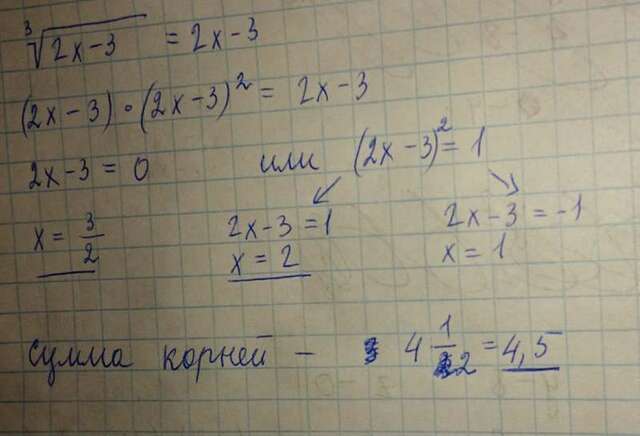 ∛(2x-3) = 2x-3
(2x-3)·(2x-3)² = 2x-3
2x-3=0 или (2x-3)²=1
x = 3/2 2x-3=1 2x-3=-1
x=2 x=1
Сумма корней - 4 1/2 = 4,5